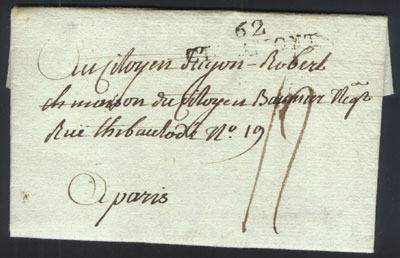 62
Au Citoyen Guyon-Robert
ch maison du Citoyen Negt
Ruë thibautodé No. 19
A paris